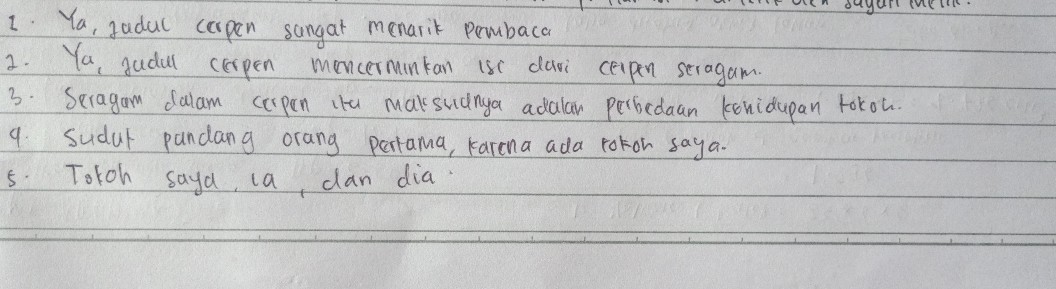 1. Ya, judul cerpen sangat menarik pembaca
2. Ya, judul cerpen mencerminkan isi dari cerpen seragam.
3. Seragam dalam cerpen itu maksudnya adalah perbedaan kehidupan tokoh.
4. Sudut pandang orang pertama, karena ada tokoh saya.
5. Tokoh saya, ia, dan dia.